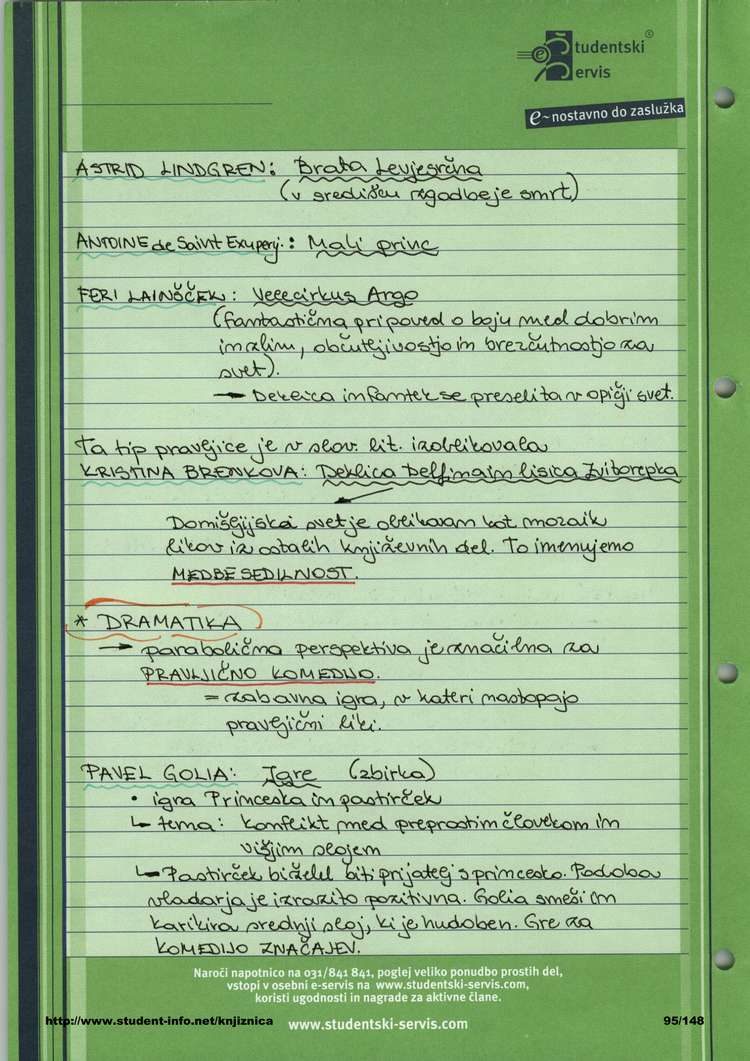 Študentski Servis®
e~nostavno do zaslužka
ASTRID LINDGREN: Brata Levjesrčna
(v središču zgodbe je smrt)
ANTOINE de Saint Exuperj.: Mali princ
FERI LAINŠČEK: Velecirkus Argo
(fantastična pripoved o boju med dobrim
in zlim, občutljivostjo in brezčutnostjo za
svet).
→ Deklica in fantek se preselita v opičji svet.
Ta tip pravljice je v slov. lit. izoblikovala
KRISTINA BRENKOVA: Deklica Delfina in lisica Zvitorepka
Domišljijski svet je oblikovan kot mozaik
likov iz ostalih književnih del. To imenujemo
MEDBESEDILNOST.
* DRAMATIKA
→ parabolična perspektiva je značilna za
PRAVLJIČNO KOMEDIJO.
= zabavna igra, v kateri nastopajo
pravljični liki.
PAVEL GOLIA: Igre (zbirka)
• igra Princeska in pastirček
↳ tema: konflikt med preprostim človekom in
višjim slojem
↳ Pastirček bi želel biti prijatelj s princesko. Podoba
vladarja je izrazito pozitivna. Golia smeši in
karikira srednji sloj, ki je hudoben. Gre za
KOMEDIJO ZNAČAJEV.
Naroči napotnico na 031/841 841, poglej veliko ponudbo prostih del,
vstopi v osebni e-servis na www.studentski-servis.com,
koristi ugodnosti in nagrade za aktivne člane.
http://www.student-info.net/knjiznica www.studentski-servis.com 95/148